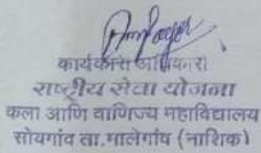 कार्यक्रम अधिकारी
राष्ट्रीय सेवा योजना
कला आणि वाणिज्य महाविद्यालय
सोयगांव ता.मालेगांव (नाशिक)